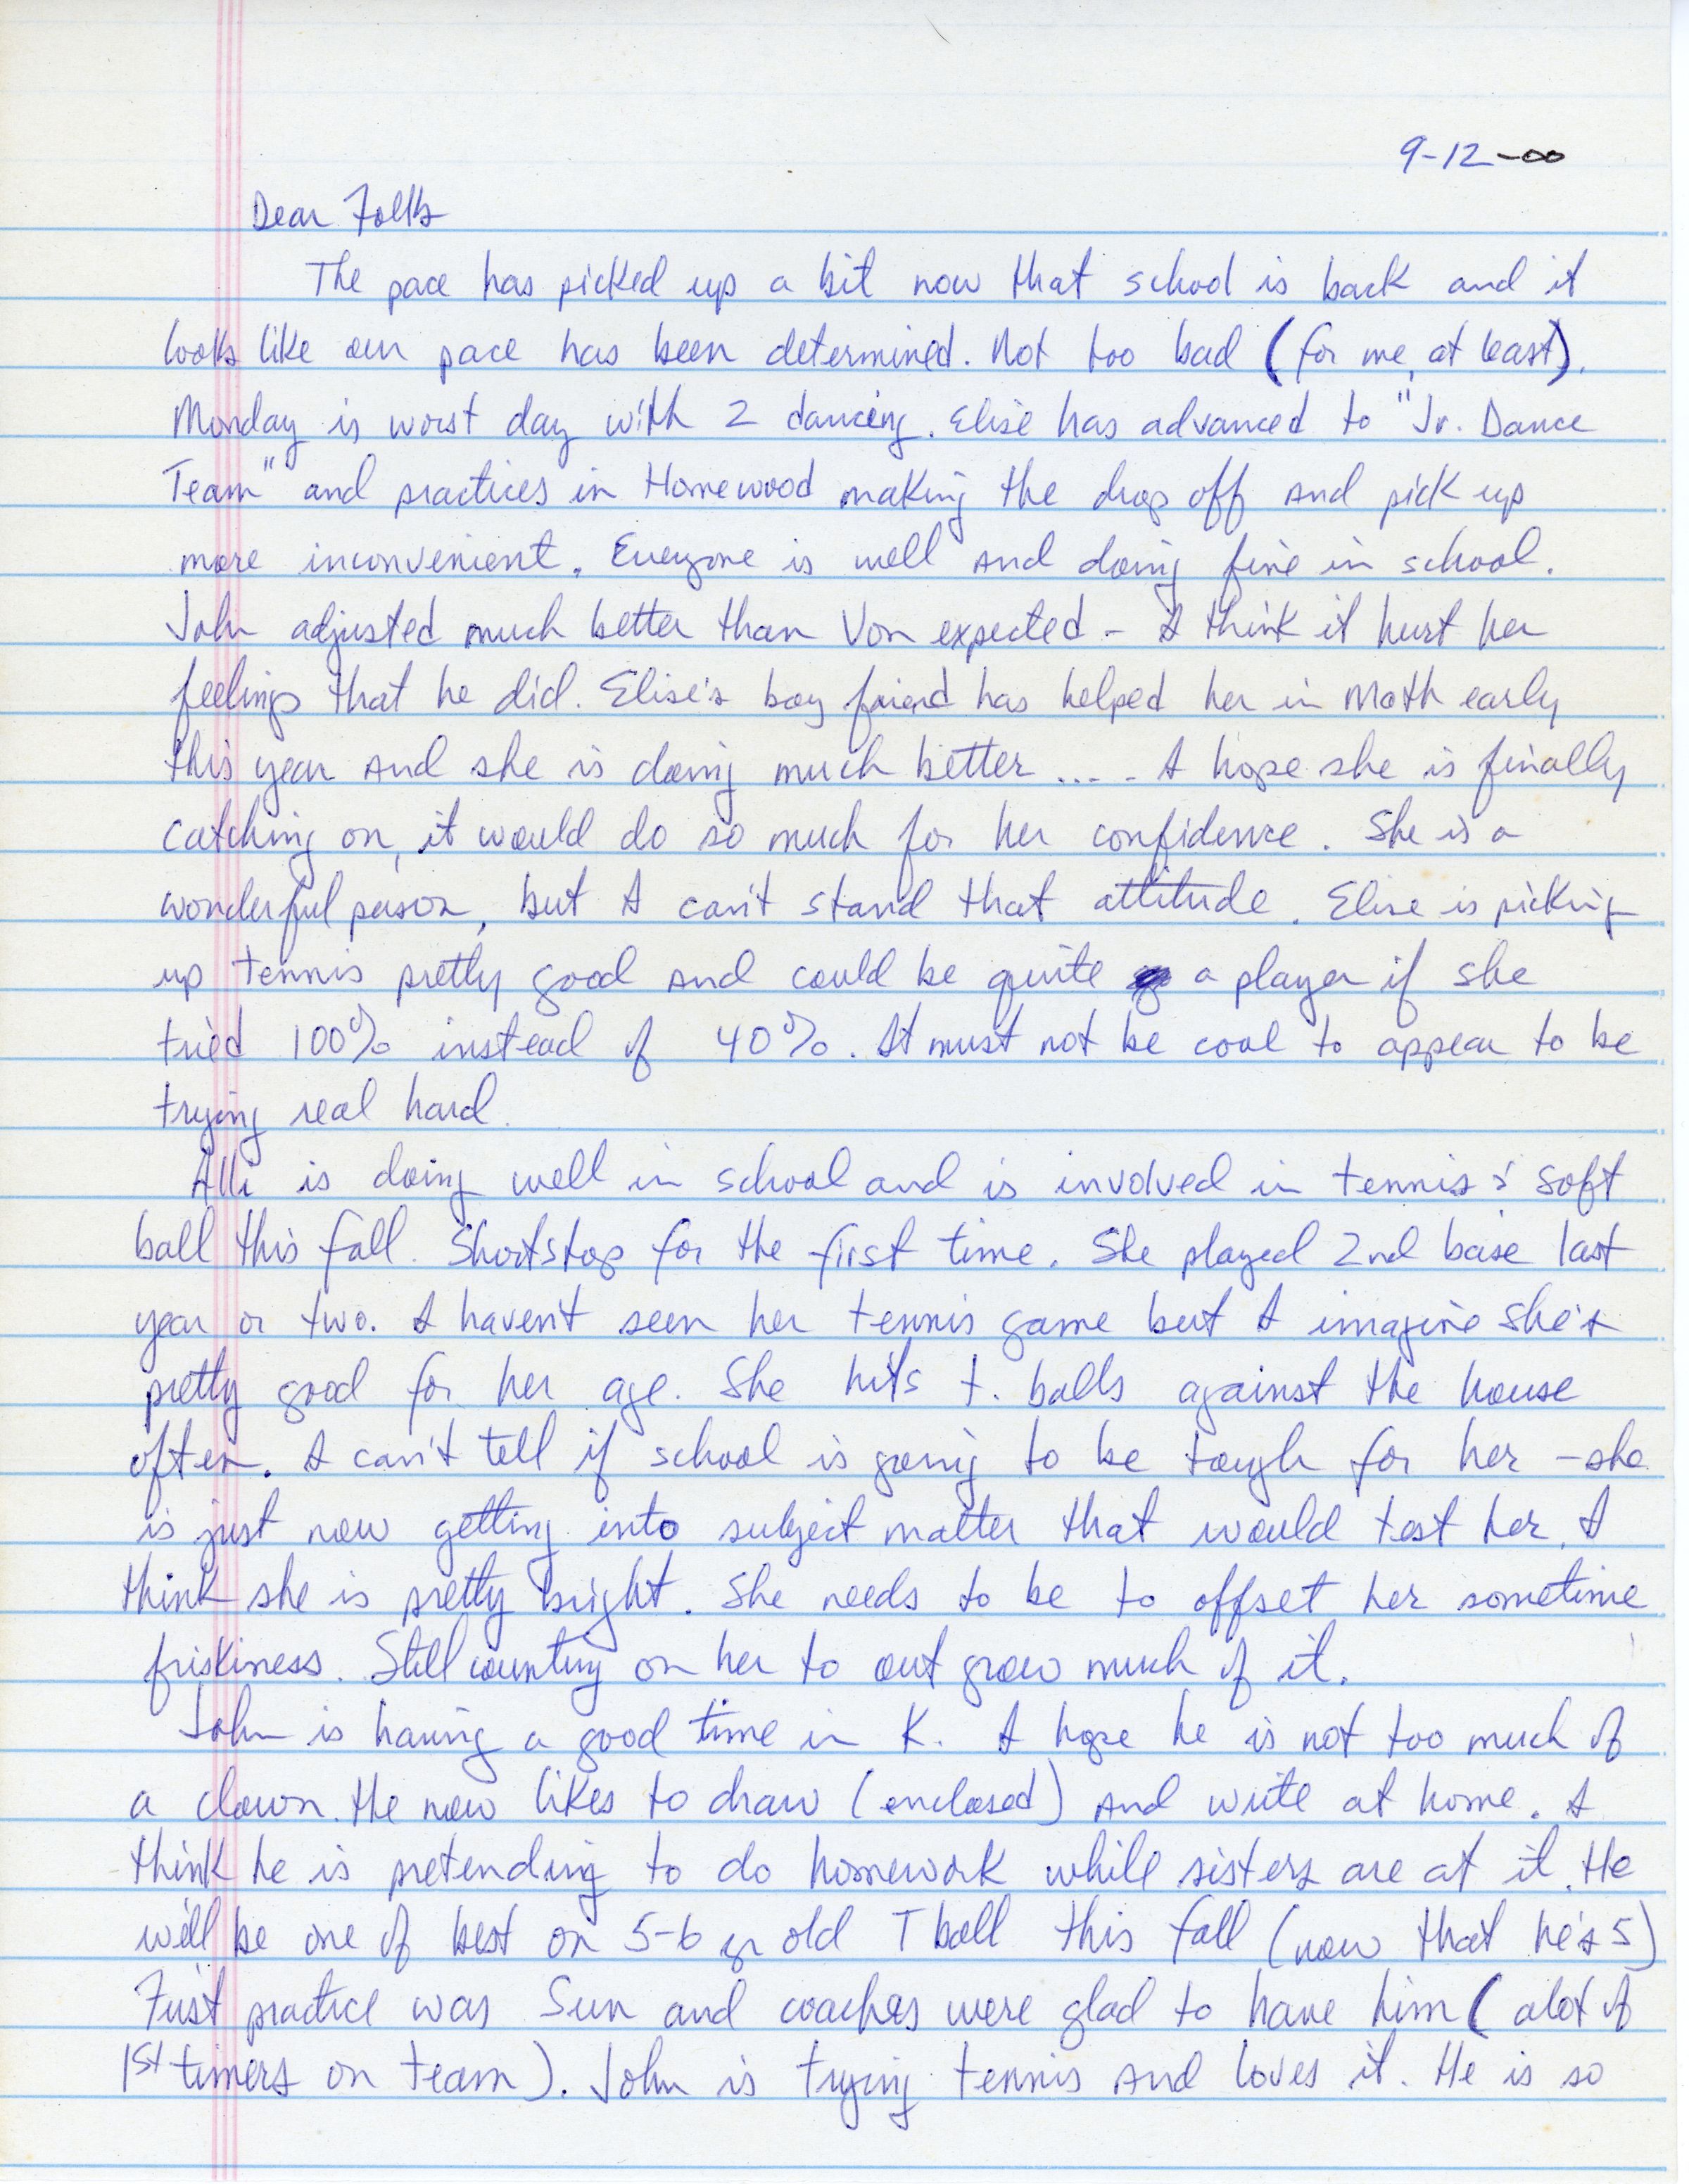 9-12-00
Dear Folks
The pace has picked up a bit now that school is back and it
looks like our pace has been determined. Not too bad (for me, at least).
Monday is worst day with 2 dancing. Elise has advanced to "Jr. Dance
Team" and practices in Homewood making the drop off and pick up
more inconvenient. Everyone is well and doing fine in school.
John adjusted much better than Von expected - I think it hurt her
feelings that he did. Elise's boy friend has helped her in Math early
this year and she is doing much better .... I hope she is finally
catching on, it would do so much for her confidence. She is a
wonderful person, but I can't stand that attitude. Elise is picking
up tennis pretty good and could be quite a player if she
tried 100% instead of 40%. It must not be cool to appear to be
trying real hard.
Alli is doing well in school and is involved in tennis & soft
ball this fall. Shortstop for the first time. She played 2nd base last
year or two. I haven't seen her tennis game but I imagine she's
pretty good for her age. She hits t. balls against the house
often. I can't tell if school is going to be tough for her - she
is just now getting into subject matter that would test her. I
think she is pretty bright. She needs to be to offset her sometime
friskiness. Still counting on her to out grow much of it.
John is having a good time in K. I hope he is not too much of
a clown. He now likes to draw (enclosed) and write at home. I
think he is pretending to do homework while sisters are at it. He
will be one of best on 5-6 yr old T ball this fall (now that he's 5)
First practice was Sun and coaches were glad to have him (alot of
1st timers on team). John is trying tennis and loves it. He is so